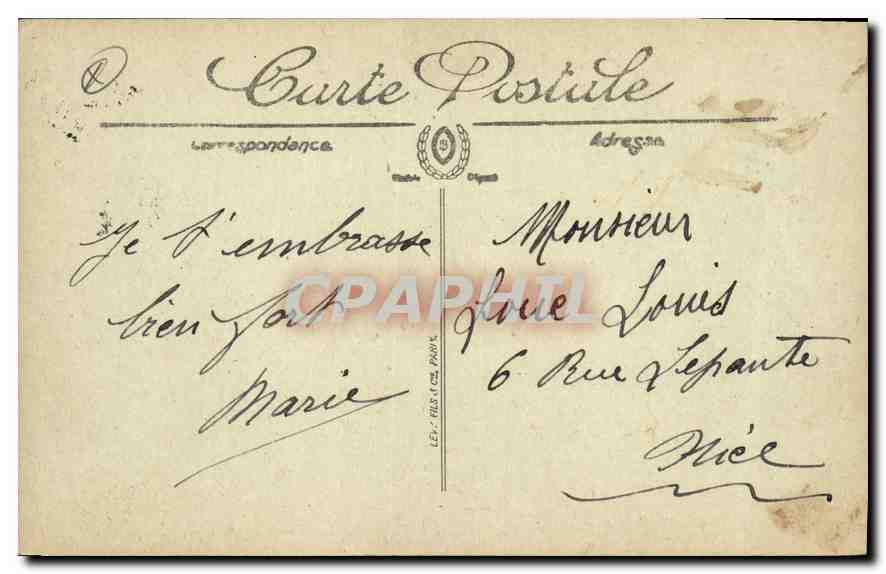 Carte Postale
Correspondance
Adresse
Je t'embrasse
bien fort
Marie
LEVY FILS & Cie, PARIS
Monsieur
Louis
6 Rue Lepante
Nice
CPAPHIL